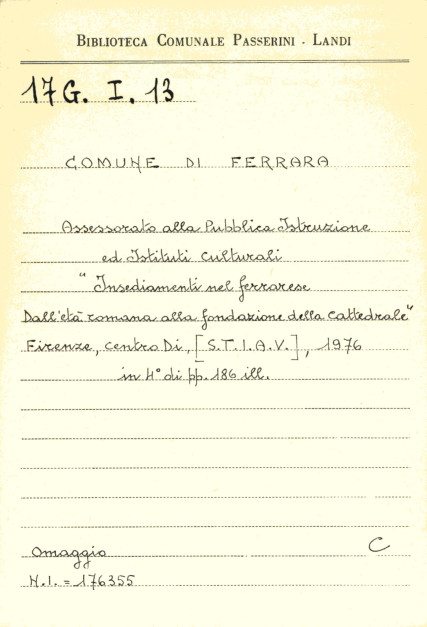 BIBLIOTECA COMUNALE PASSERINI - LANDI
17 G. I. 13
COMUNE DI FERRARA
Assessorato alla Pubblica Istruzione
ed Istituti Culturali
"Insediamenti nel ferrarese
Dall'età romana alla fondazione della Cattedrale"
Firenze, Centro Di, [S.T.I.A.V.], 1976
in 4° di pp. 186 ill.
Omaggio C
N.I. = 176355